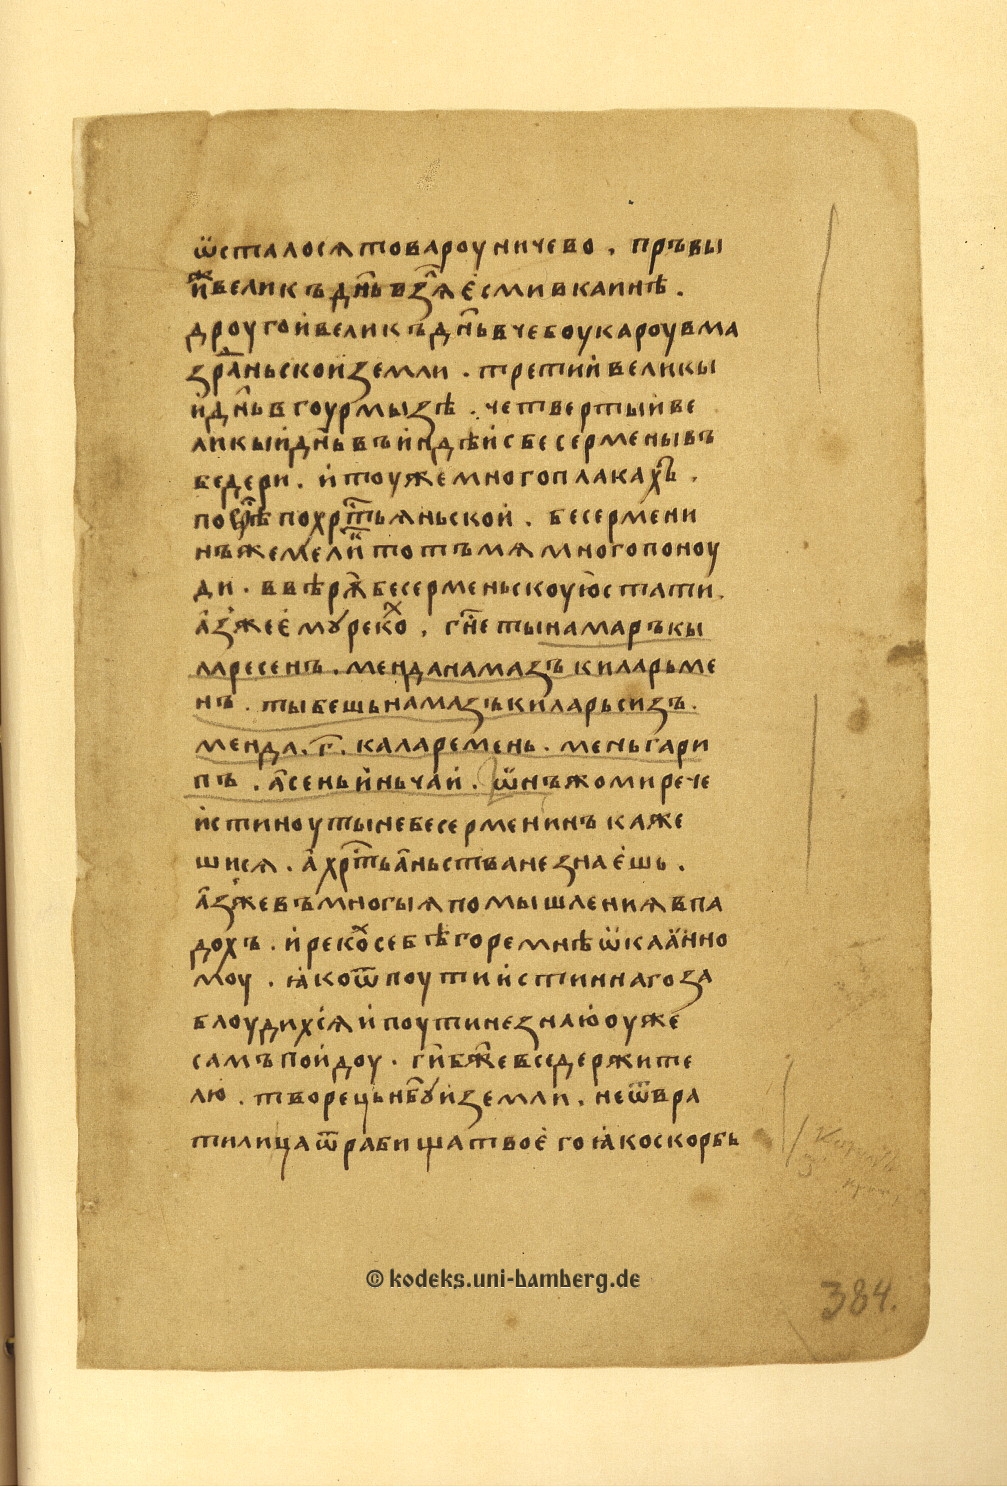 ѿсталосѧтовароуничево . пръвы
и҆ж великъ дн҃ь взѧⷧ҇ є҆сми в каинѣ .
дроугои великъ дн҃ь в чебоукароу в ма
зрⷣаньскои земли . третии̇ великы
и̇ дн҃ь в гоурмызѣ . четвертыи̇ ве
ликыи̇ дн҃ь въ и̇ндѣи̇ с бесермены въ
бедери . и̇ тоу же много плакахъ .
по вѣⷬ҇ по хрⷭ҇тьѧньскои̇ . бесермени
нъ же меликⷦ҇ тотъ мѧ много поноу
ди . в вѣрѫ̑ бесерменьскоую̇ стати .
а҆з же є҆моу рекоⷯ , гн҃е ты намаръ кы
ларесенъ . менда намазъ киларьме
нъ . ты бешь намазъ киларьсизъ .
менда . г҃ . каларемень . мень гари
пъ . а҆сень и̇ньчаи̇ . ѡ҆нъжо ми рече
и̇стиноу ты не бесерменинъ каже
шисѧ . а҆ хрⷭ҇тьа҆ньства не знає҆шь .
а҆з же въ многыѧ помышленіѧ впа
дохъ . и̇ рекоⷯ себѣ горе мнѣ ѡ҆каа҆нно
моу . ꙗ҆ко ѿ поути и̇стиннаго за
блоудихсѧ и̇ поути не знаю̇ оуже
самъ пои̇доу . гⷭ҇и бж҃е вседержите
лю . творець нб҃оу и̇ земли . не ѿвра
ти лица ѿ рабища твоє҆го ꙗ҆ко скорбь
© kodeks.uni-bamberg.de
384.